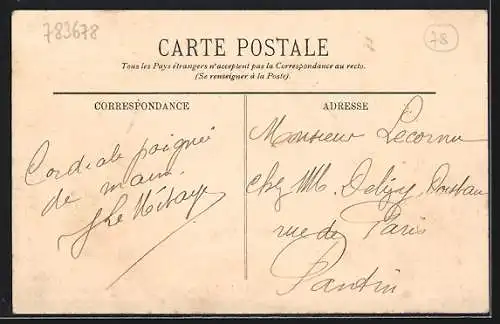 783678
78
CARTE POSTALE
Tous les Pays étrangers n'acceptent pas la Correspondance au recto.
(Se renseigner à la Poste).
CORRESPONDANCE
ADRESSE
Cordiale poignée
de main.
Monsieur Lecornu
chez MM.
rue de Paris
Pantin